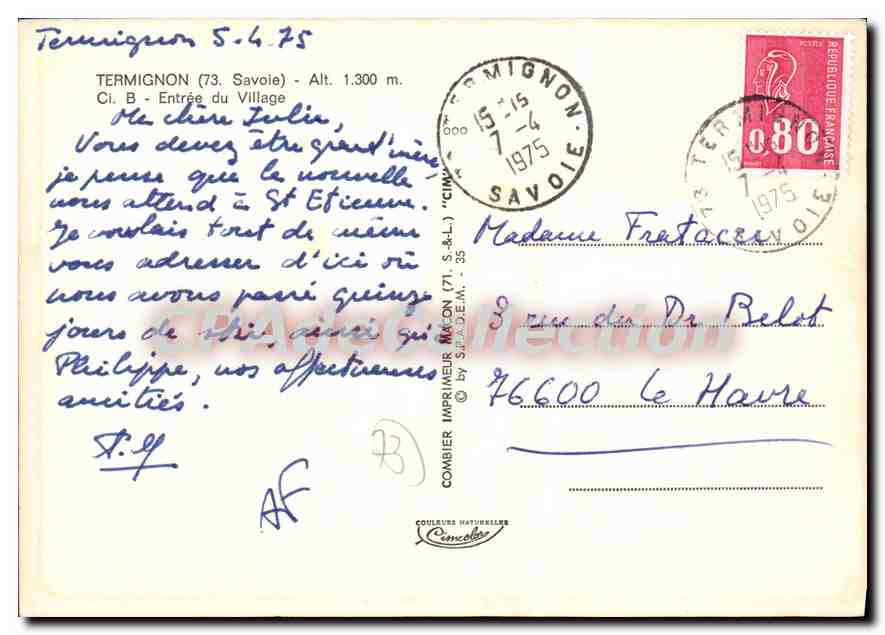 Termignon 5.4.75
TERMIGNON (73. Savoie) - Alt. 1.300 m.
Ci. B - Entrée du Village
Ma chère Julie,
Vous devez être grand'mère
je pense que la nouvelle
nous attend à St Etienne.
Je voulais tout de même
vous adresser d'ici où
nous avons passé quinze
jours de ski, ainsi qu'à
Philippe, nos affectueuses
amitiés.
AF
73
COMBIER IMPRIMEUR MACON (71. S.-&-L.) "CIM"
© by S.P.A.D.E.M. - 35
COULEURS NATURELLES
Cimcolor
TERMIGNON
15-15
7-4
1975
SAVOIE
POSTES
RÉPUBLIQUE FRANÇAISE
0,80
73 TERMIGNON
15
7-4
1975
SAVOIE
Madame
9 rue du Dr Belot
76600 Le Havre
CPArtCollection